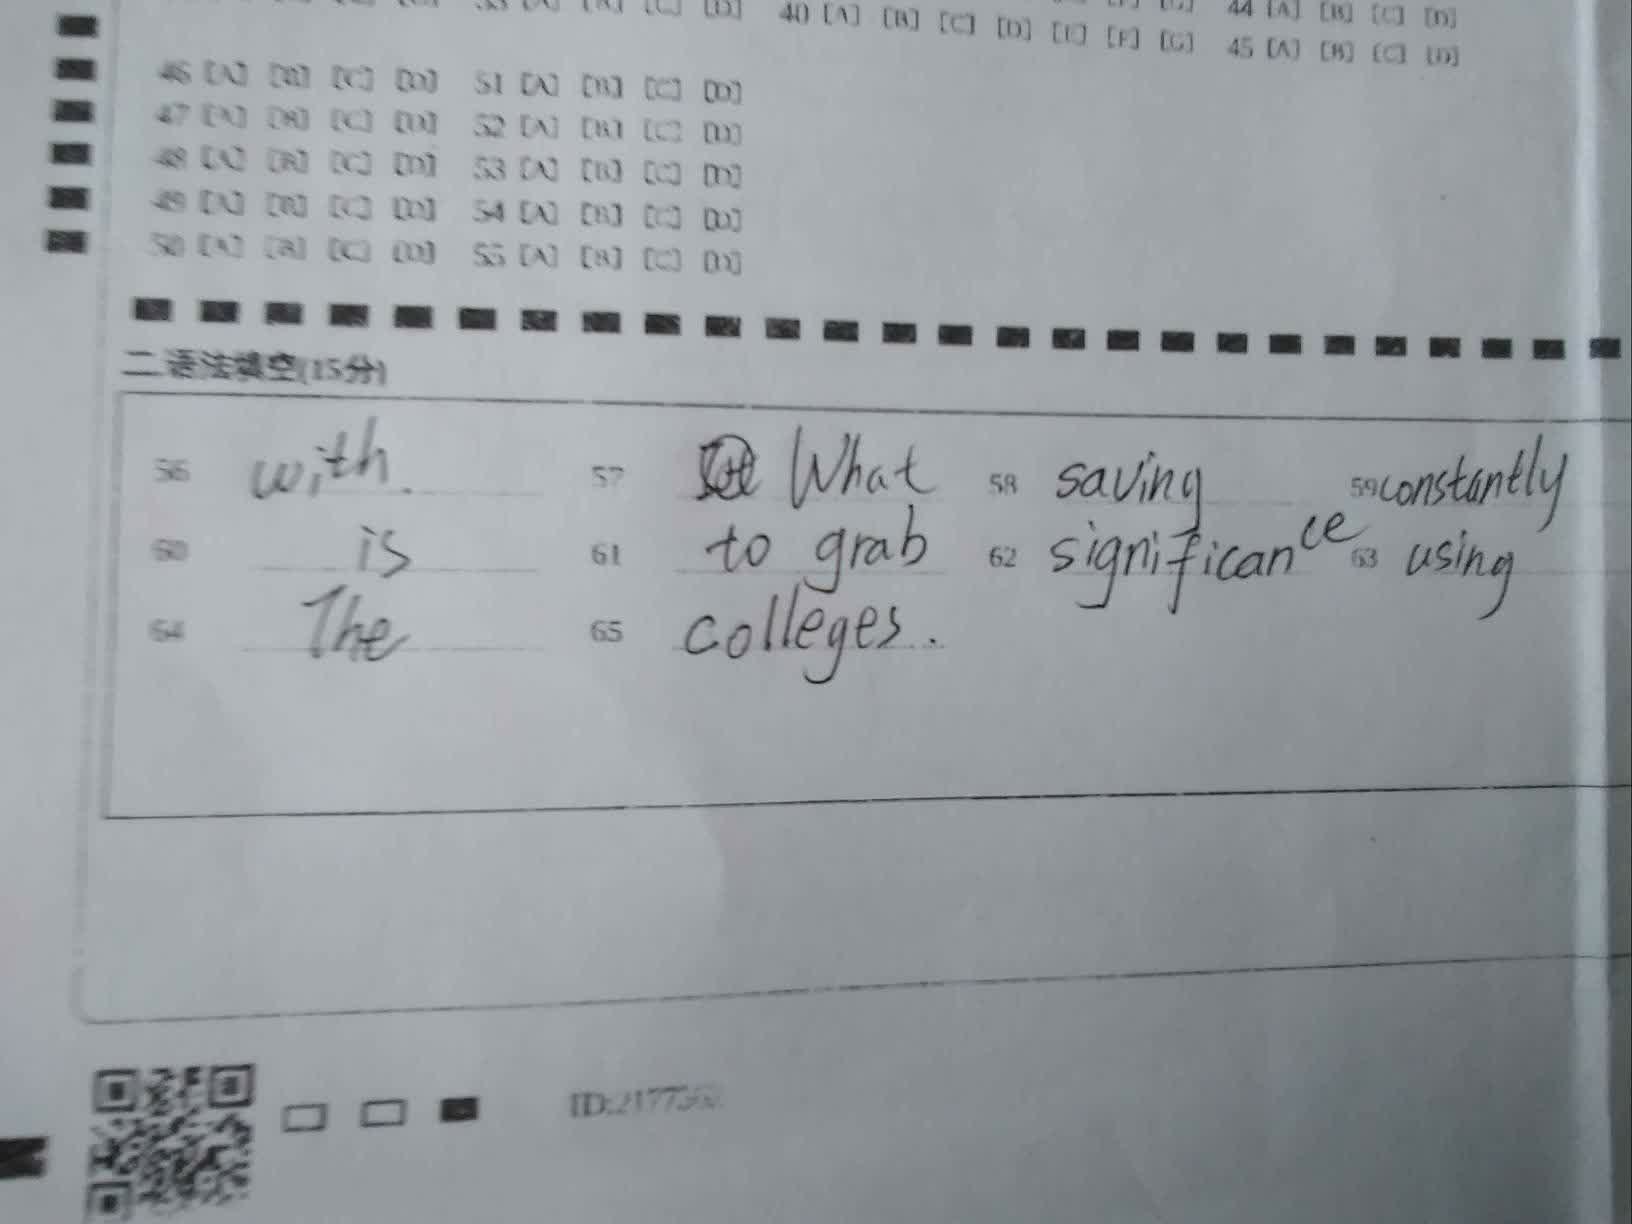 44 [A] [B] [C] [D]
40 [A] [B] [C] [D] [E] [F] [G] 45 [A] [B] [C] [D]
46 [A] [B] [C] [D] 51 [A] [B] [C] [D]
47 [A] [B] [C] [D] 52 [A] [B] [C] [D]
48 [A] [B] [C] [D] 53 [A] [B] [C] [D]
49 [A] [B] [C] [D] 54 [A] [B] [C] [D]
50 [A] [B] [C] [D] 55 [A] [B] [C] [D]
二 语法填空(15分)
56 with. 57 What 58 saving 59 constantly
60 is 61 to grab 62 significance 63 using
64 The 65 colleges.